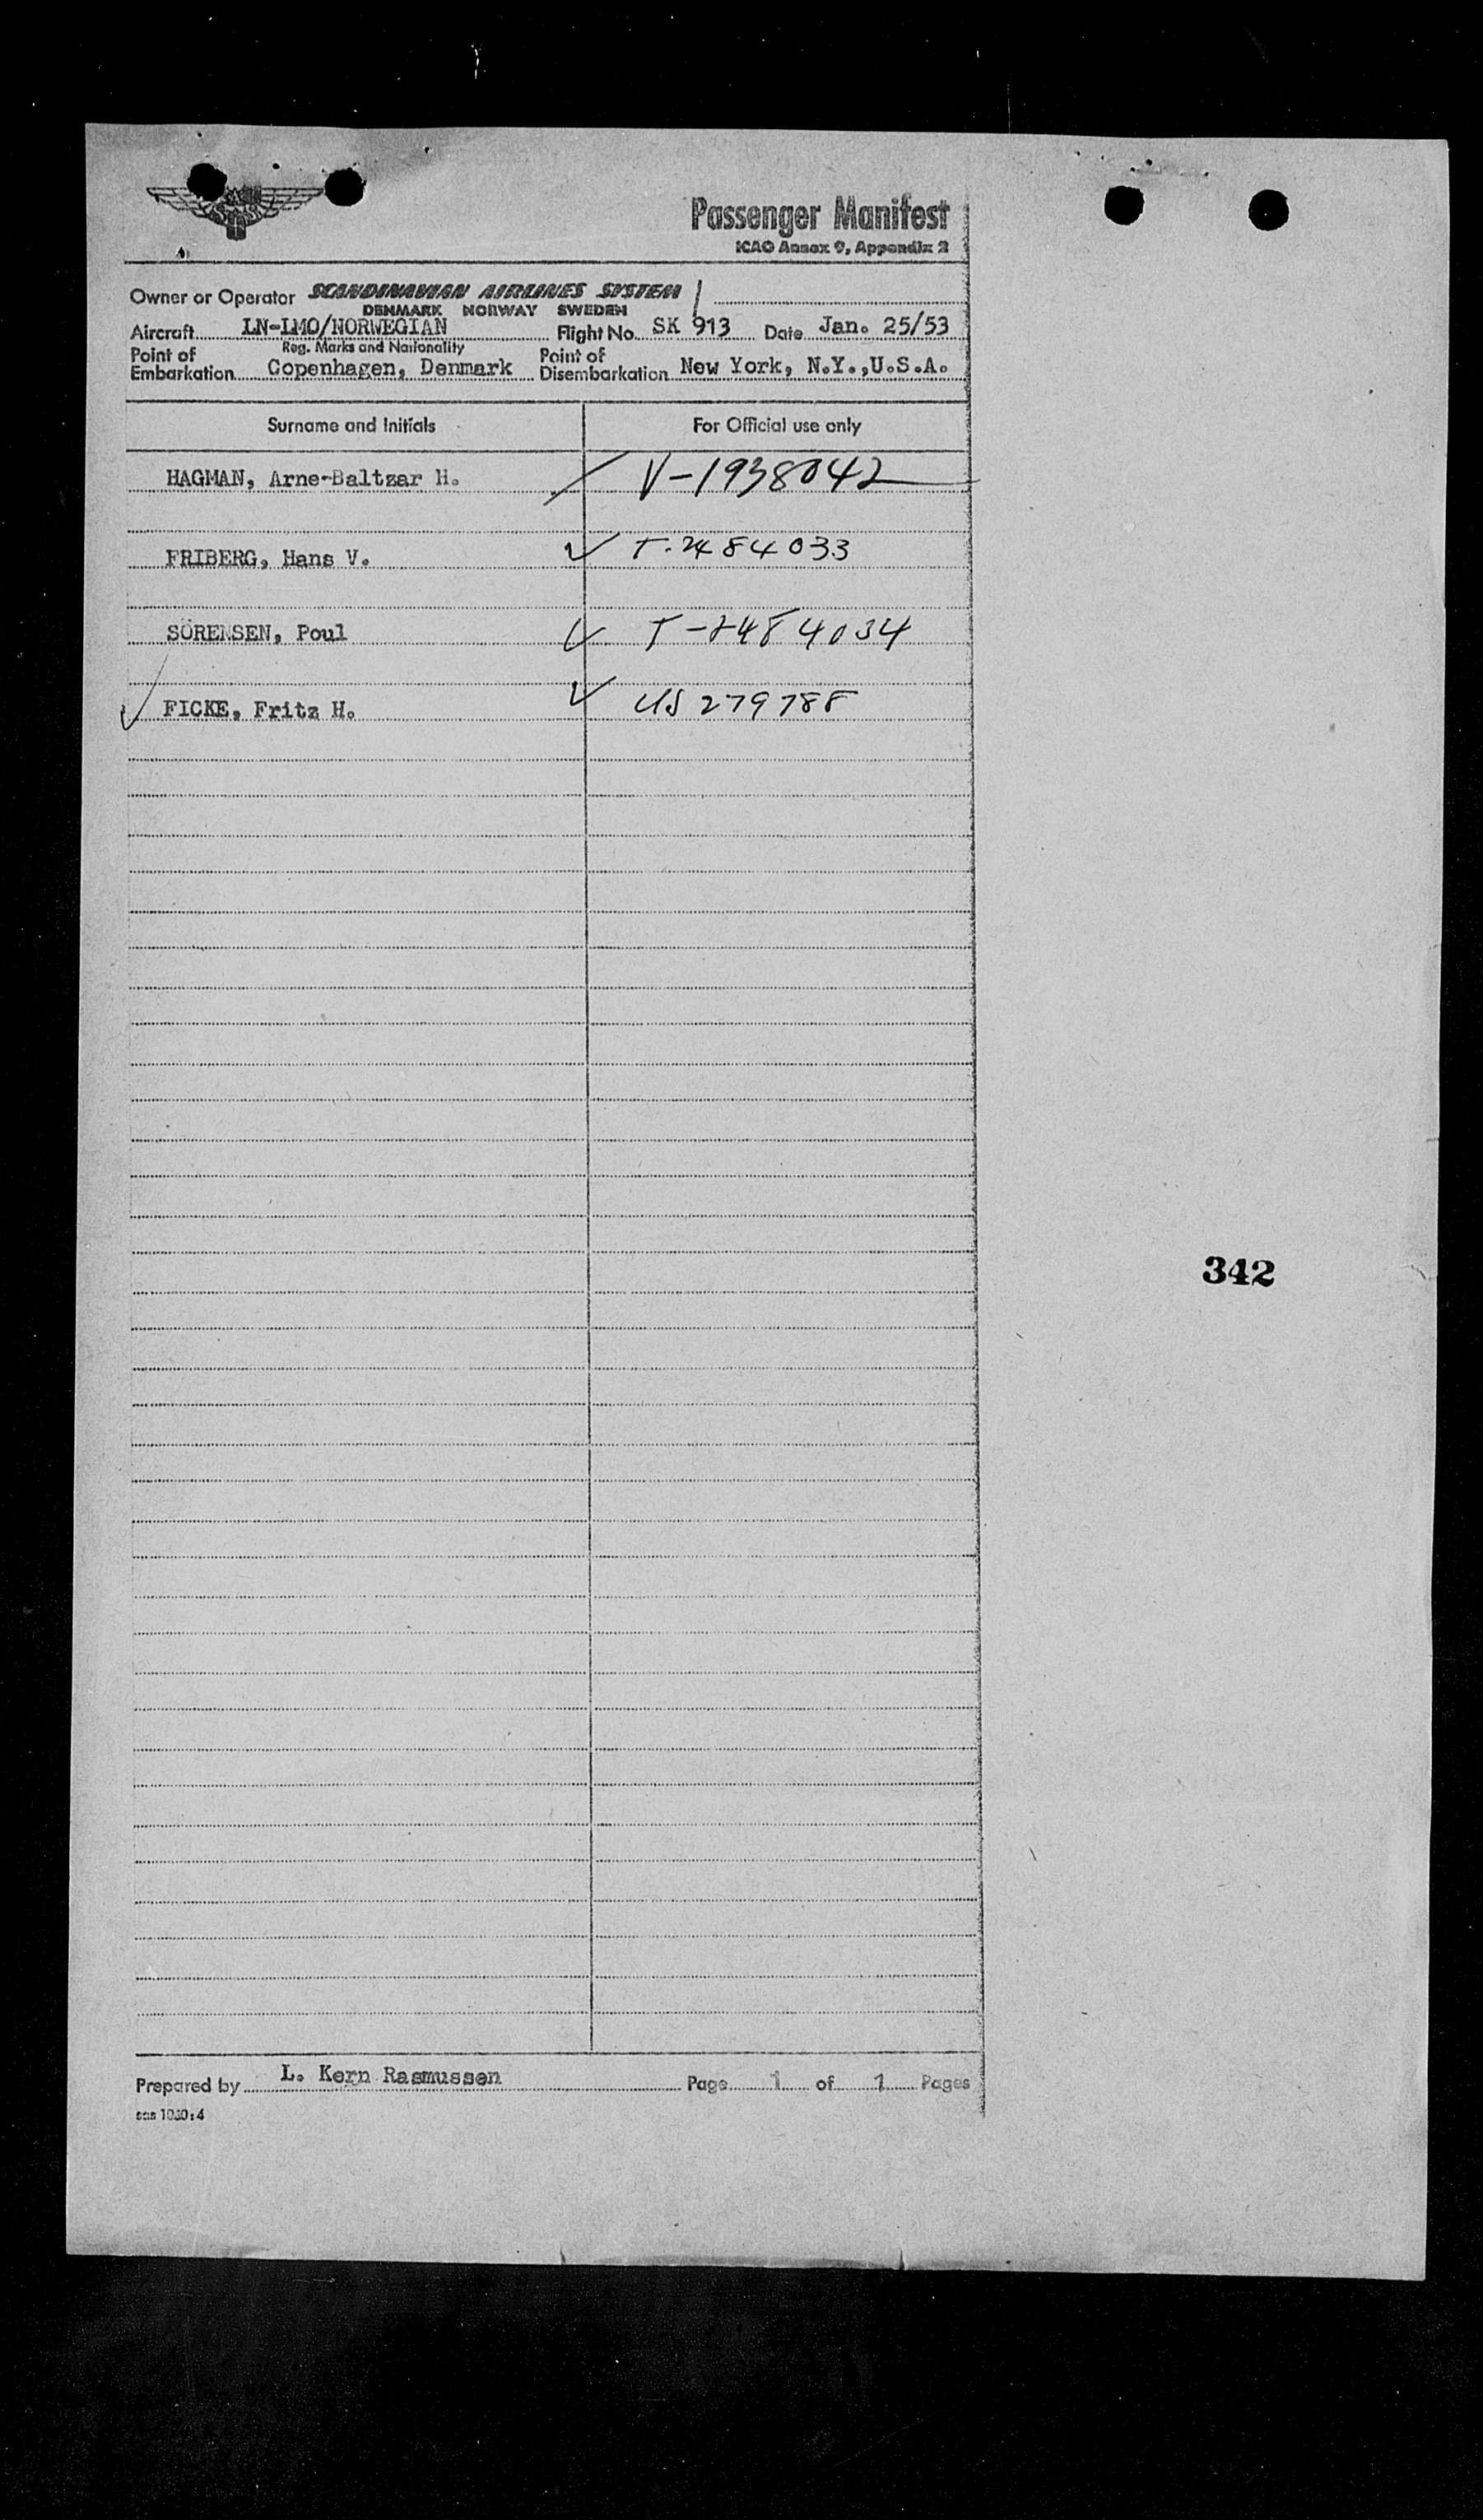 SAS
Passenger Manifest
ICAO Annex 9, Appendix 2
Owner or Operator SCANDINAVIAN AIRLINES SYSTEM
DENMARK NORWAY SWEDEN
Aircraft LN-LMO/NORWEGIAN Flight No. SK 913 Date Jan. 25/53
Reg. Marks and Nationality
Point of Embarkation Copenhagen, Denmark Point of Disembarkation New York, N.Y.,U.S.A.
Surname and Initials For Official use only
HAGMAN, Arne-Baltzar H. V-1938042
FRIBERG, Hans V. T-2484033
SÖRENSEN, Poul T-2484034
FICKE, Fritz H. US 279788
342
Prepared by L. Kern Rasmussen Page 1 of 1 Pages
sas 1030:4